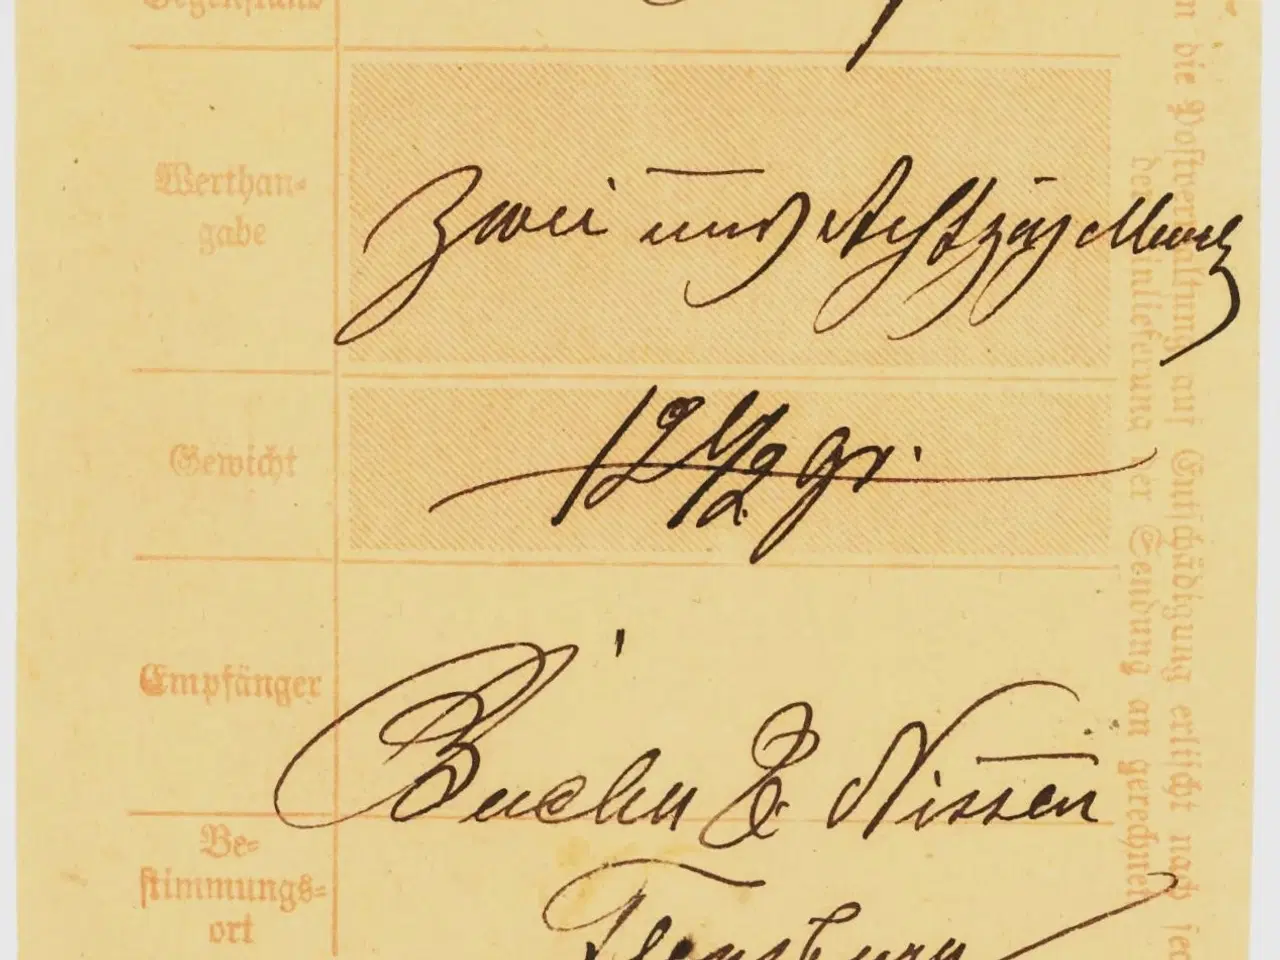 Gegenstand
Werthan-
gabe
Zwei und Achtzig Mark
Gewicht
12 1/2 gr.
Empfänger
& Nissen
Be-
stimmungs-
ort
Flensburg
die Postverwaltung auf Entschädigung erlischt nach
der Einlieferung der Sendung an gerechnet